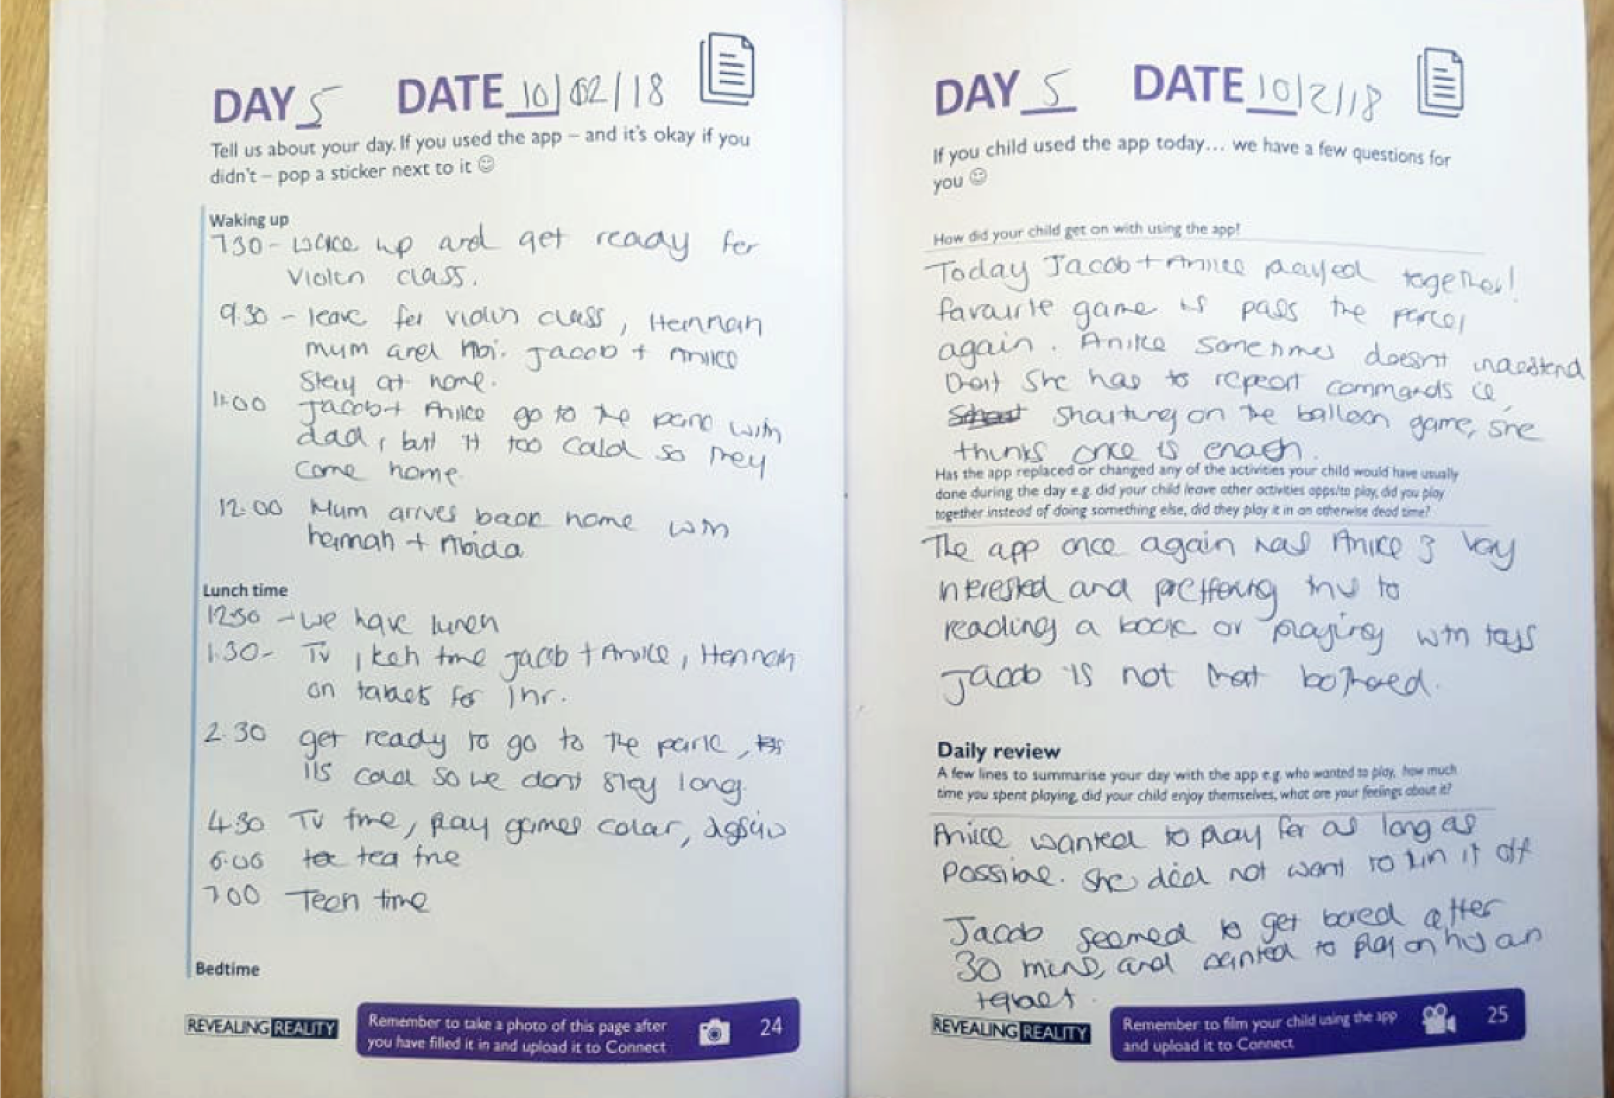 DAY 5 DATE 10/02/18
Tell us about your day. If you used the app – and it's okay if you
didn't – pop a sticker next to it ☺
Waking up
730 - wake up and get ready for
violin class.
9.30 - leave for violin class, Hannah
mum and Abi. Jacob + Anike
stay at home.
11:00 Jacob + Anike go to the park with
dad, but it too cold so they
come home.
12:00 Mum arrives back home with
hannah + Abida
Lunch time
12:30 - we have lunch
1.30 - TV, time Jacob + Anike, Hannah
on tablets for 1hr.
2.30 get ready to go to the park,
its cold so we dont stay long.
4.30 TV time, play games color,
6.00 tea time
700 Teen time
Bedtime
REVEALING REALITY
Remember to take a photo of this page after
you have filled it in and upload it to Connect
24
DAY 5 DATE 10/2/18
If you child used the app today... we have a few questions for
you ☺
How did your child get on with using the app?
Today Jacob + Anike played together!
favourite game is pass the parcel
again. Anike sometimes doesnt understand
that she has to repeat commands ie
shouting on the balloon game, she
thinks once is enogh.
Has the app replaced or changed any of the activities your child would have usually
done during the day e.g. did your child leave other activities apps/to play, did you play
together instead of doing something else, did they play it in an otherwise dead time?
The app once again has Anike very
interested and preffering this to
reading a book or playing with toys
Jacob is not that bothered.
Daily review
A few lines to summarise your day with the app e.g. who wanted to play, how much
time you spent playing, did your child enjoy themselves, what are your feelings about it?
Anike wanted to play for as long as
possible. She did not want to turn it off
Jacob seemed to get bored after
30 mins, and wanted to play on his own
tablet.
REVEALING REALITY
Remember to film your child using the app
and upload it to Connect
25